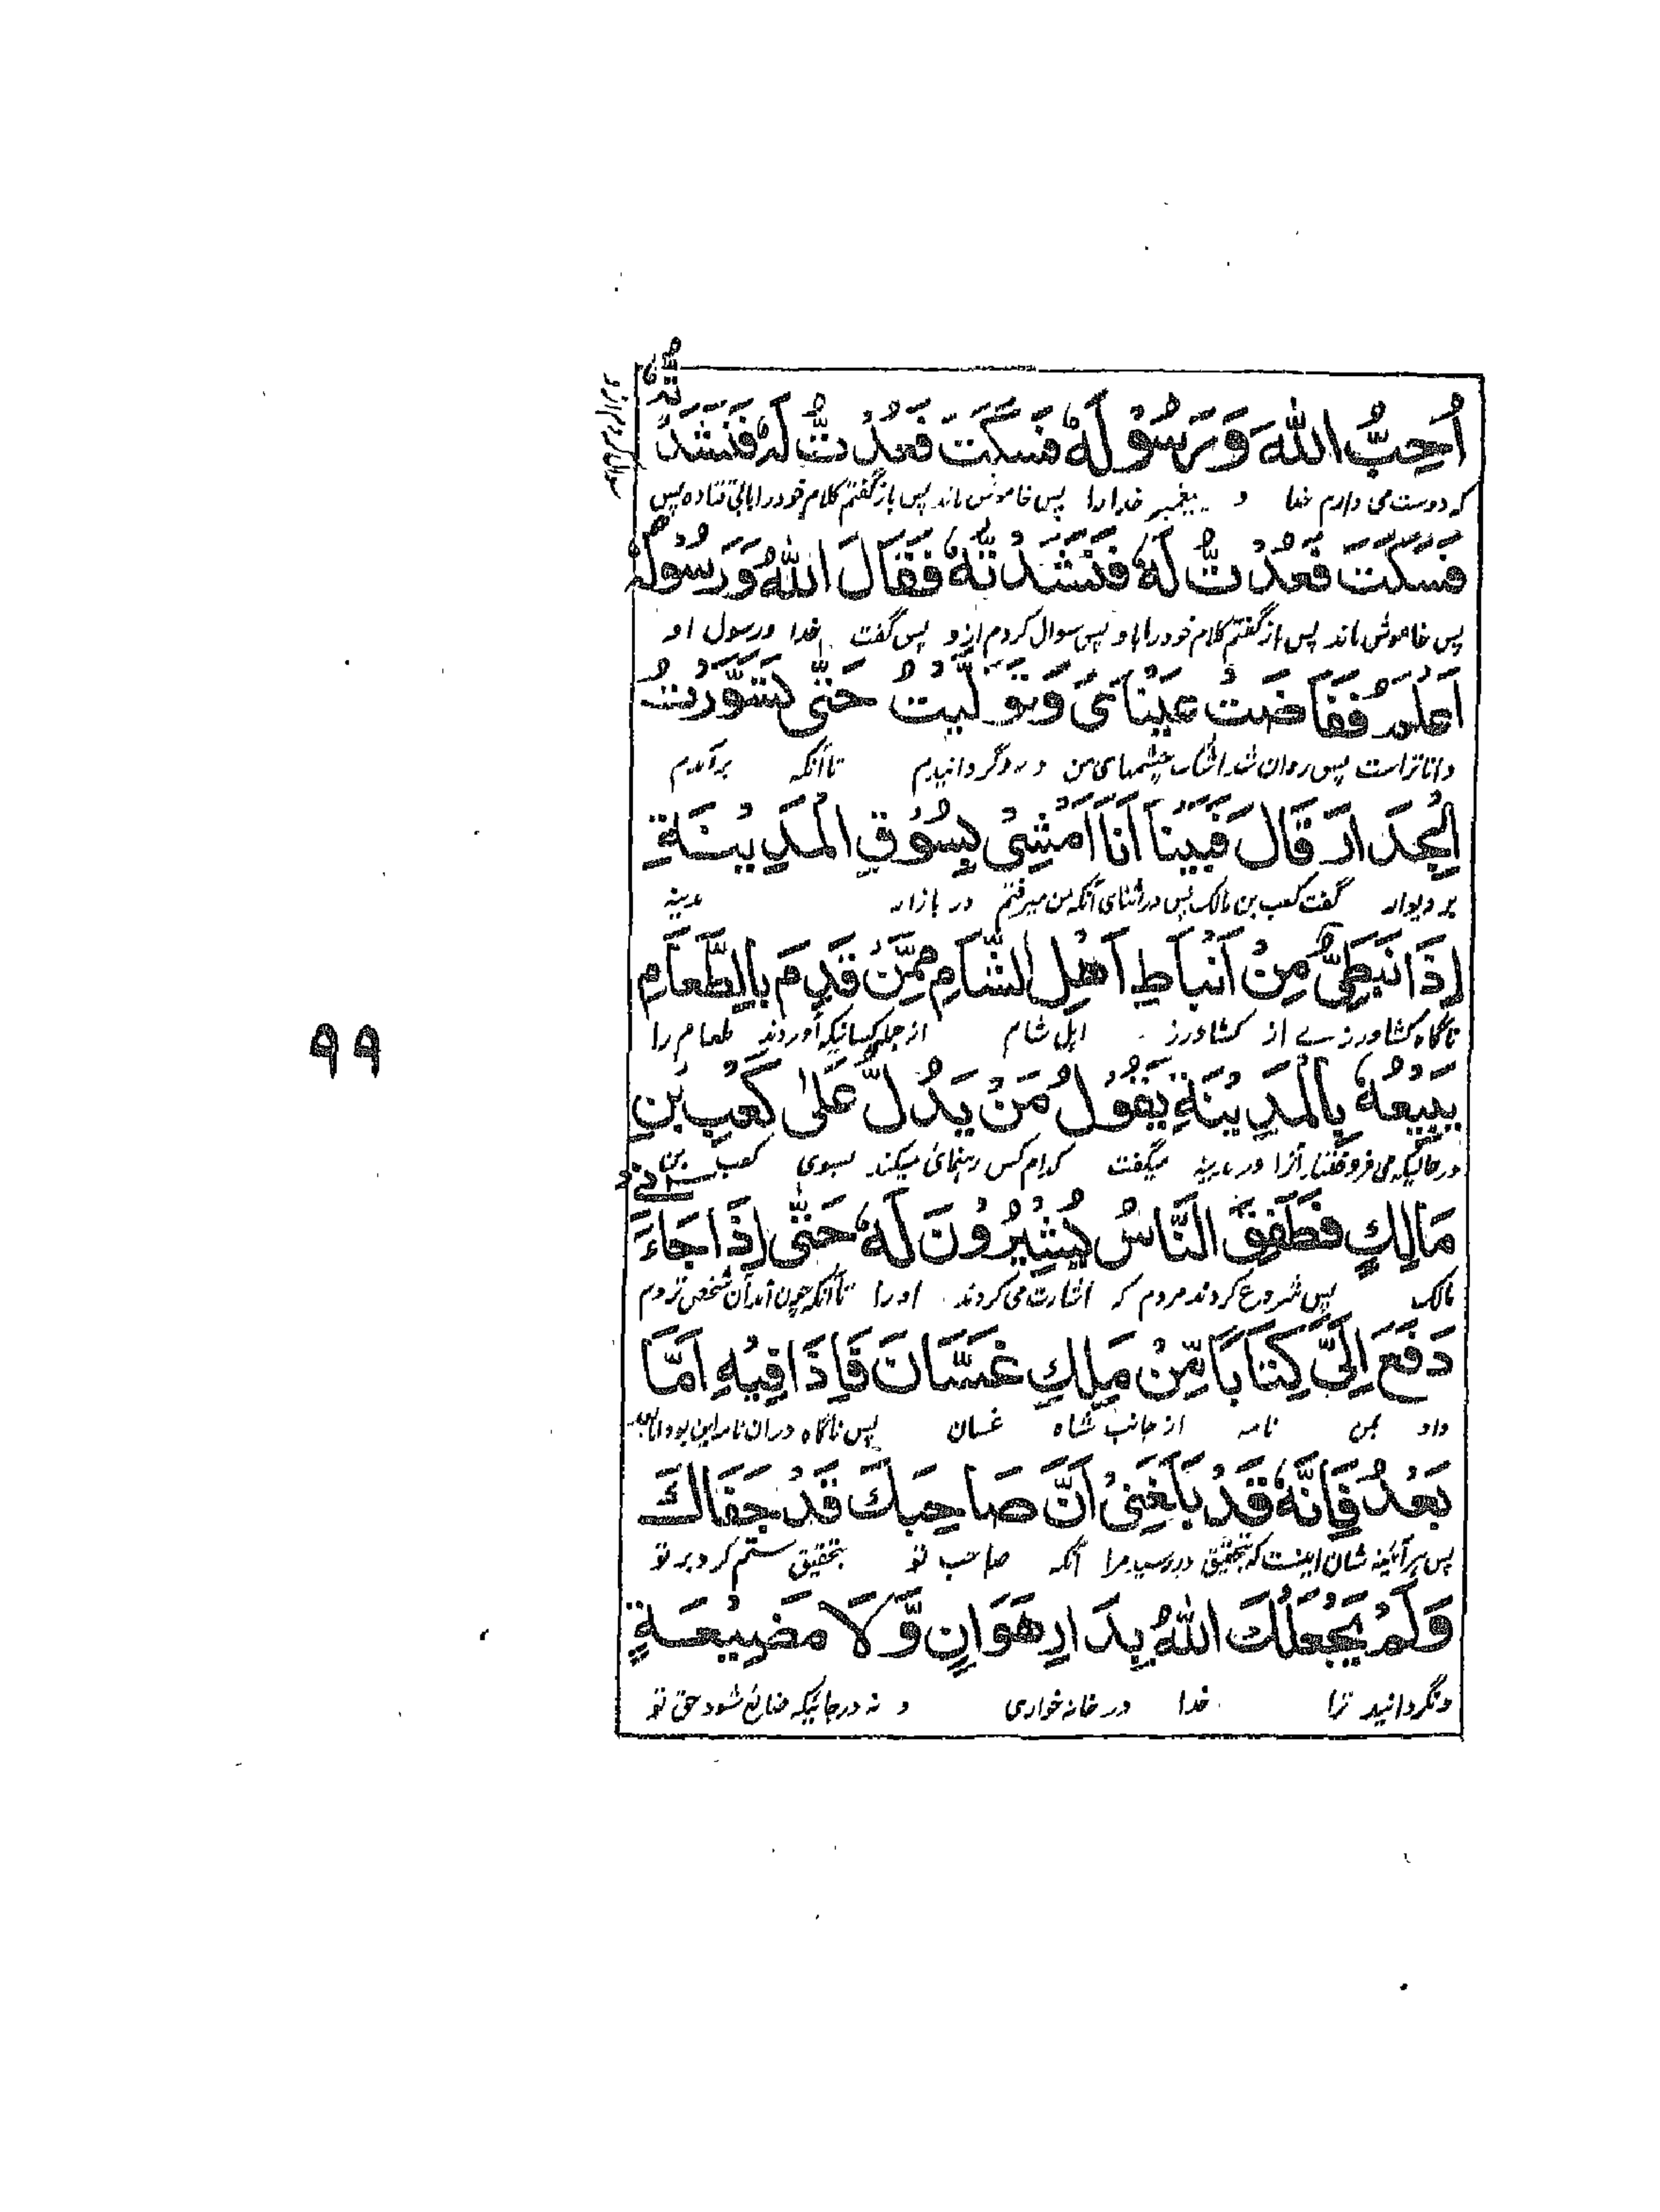 اُحِبُّ اللهَ وَرَسُوْلَهٗ فَسَكَتَ فَعُدْتُّ لَهٗ فَنَشَدْتُّهٗ
که دوست می دارم خدا و پیغمبر خدا را پس خاموش ماند پس باز گفتم کلام خود را با ابی قتاده پس
سوال کردم از و
فَسَكَتَ فَعُدْتُّ لَهٗ فَنَشَدْتُّهٗ فَقَالَ اللهُ وَرَسُوْلُهٗ
پس خاموش ماند پس از گفتم کلام خود را با و پس سوال کردم از و پس گفت خدا و رسول او
اَعْلَمُ فَفَاضَتْ عَيْنَايَ وَتَوَلَّيْتُ حَتّٰى تَسَوَّرْتُ
داناتر است پس روان شد اشک چشمهای من و رو گردانیدم تا آنکه برآمدم
الْجِدَارَ قَالَ فَبَيْنَا اَنَا اَمْشِيْ بِسُوْقِ الْمَدِيْنَةِ
بر دیوار گفت کعب بن مالک پس در اثنای آنکه من میرفتم در بازار مدینه
اِذَا نَبَطِيٌّ مِنْ اَنْبَاطِ اَهْلِ الشَّامِ مِمَّنْ قَدِمَ بِالطَّعَامِ
ناگاه کشاورزے از کشاورز اہل شام از جمله کسانیکه آوردند طعام را
يَبِيْعُهٗ بِالْمَدِيْنَةِ يَقُوْلُ مَنْ يَدُلُّ عَلٰى كَعْبِ بْنِ
در حالیکه می فروختند آنرا در مدینه میگفت کدام کس رہنمائی میکند بسوی کعب بن
مَالِكٍ فَطَفِقَ النَّاسُ يُشِيْرُوْنَ لَهٗ حَتّٰى اِذَا جَاءَنِيْ
مالک پس شروع کردند مردم که اشارت می کردند او را تا آنکه چون آمد آن شخص نزدم
دَفَعَ اِلَيَّ كِتَابًا مِّنْ مَلِكِ غَسَّانَ فَاِذَا فِيْهِ اَمَّا
داد بمن نامه از جانب شاه غسان پس ناگاه در ان نامه این بود اما
بَعْدُ فَاِنَّهٗ قَدْ بَلَغَنِيْ اَنَّ صَاحِبَكَ قَدْ جَفَاكَ
پس ہر آئینه شان اینست که بتحقیق در رسید مرا آنکه صاحب تو بتحقیق ستم کرد بر تو
وَلَمْ يَجْعَلْكَ اللهُ بِدَارِ هَوَانٍ وَّلَا مَضِيْعَةٍ
و نگردانید ترا خدا در خانه خواری و نه در جائیکه ضائع شود حق تو
۹۹